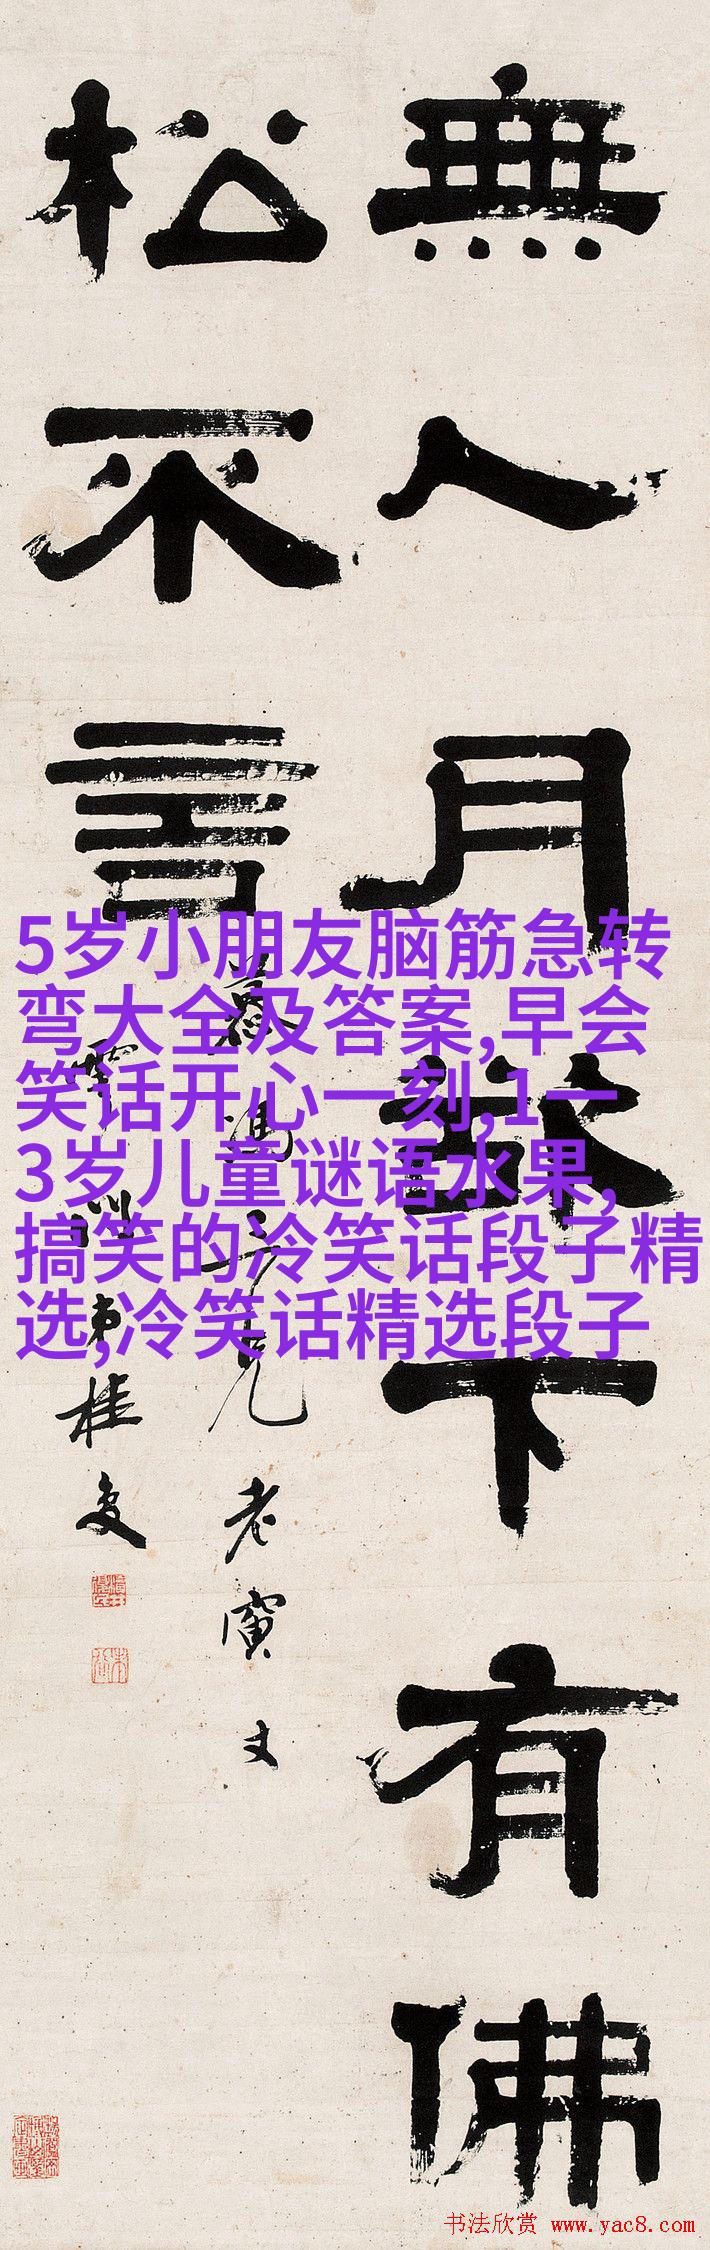 無人月下有佛
松不言
兄老寅丈
雩門弟桂
5岁小朋友脑筋急转
弯大全及答案,早会
笑话开心一刻,1一
3岁儿童谜语水果,
搞笑的冷笑话段子精
选,冷笑话精选段子
书法欣赏 www.yac8.com